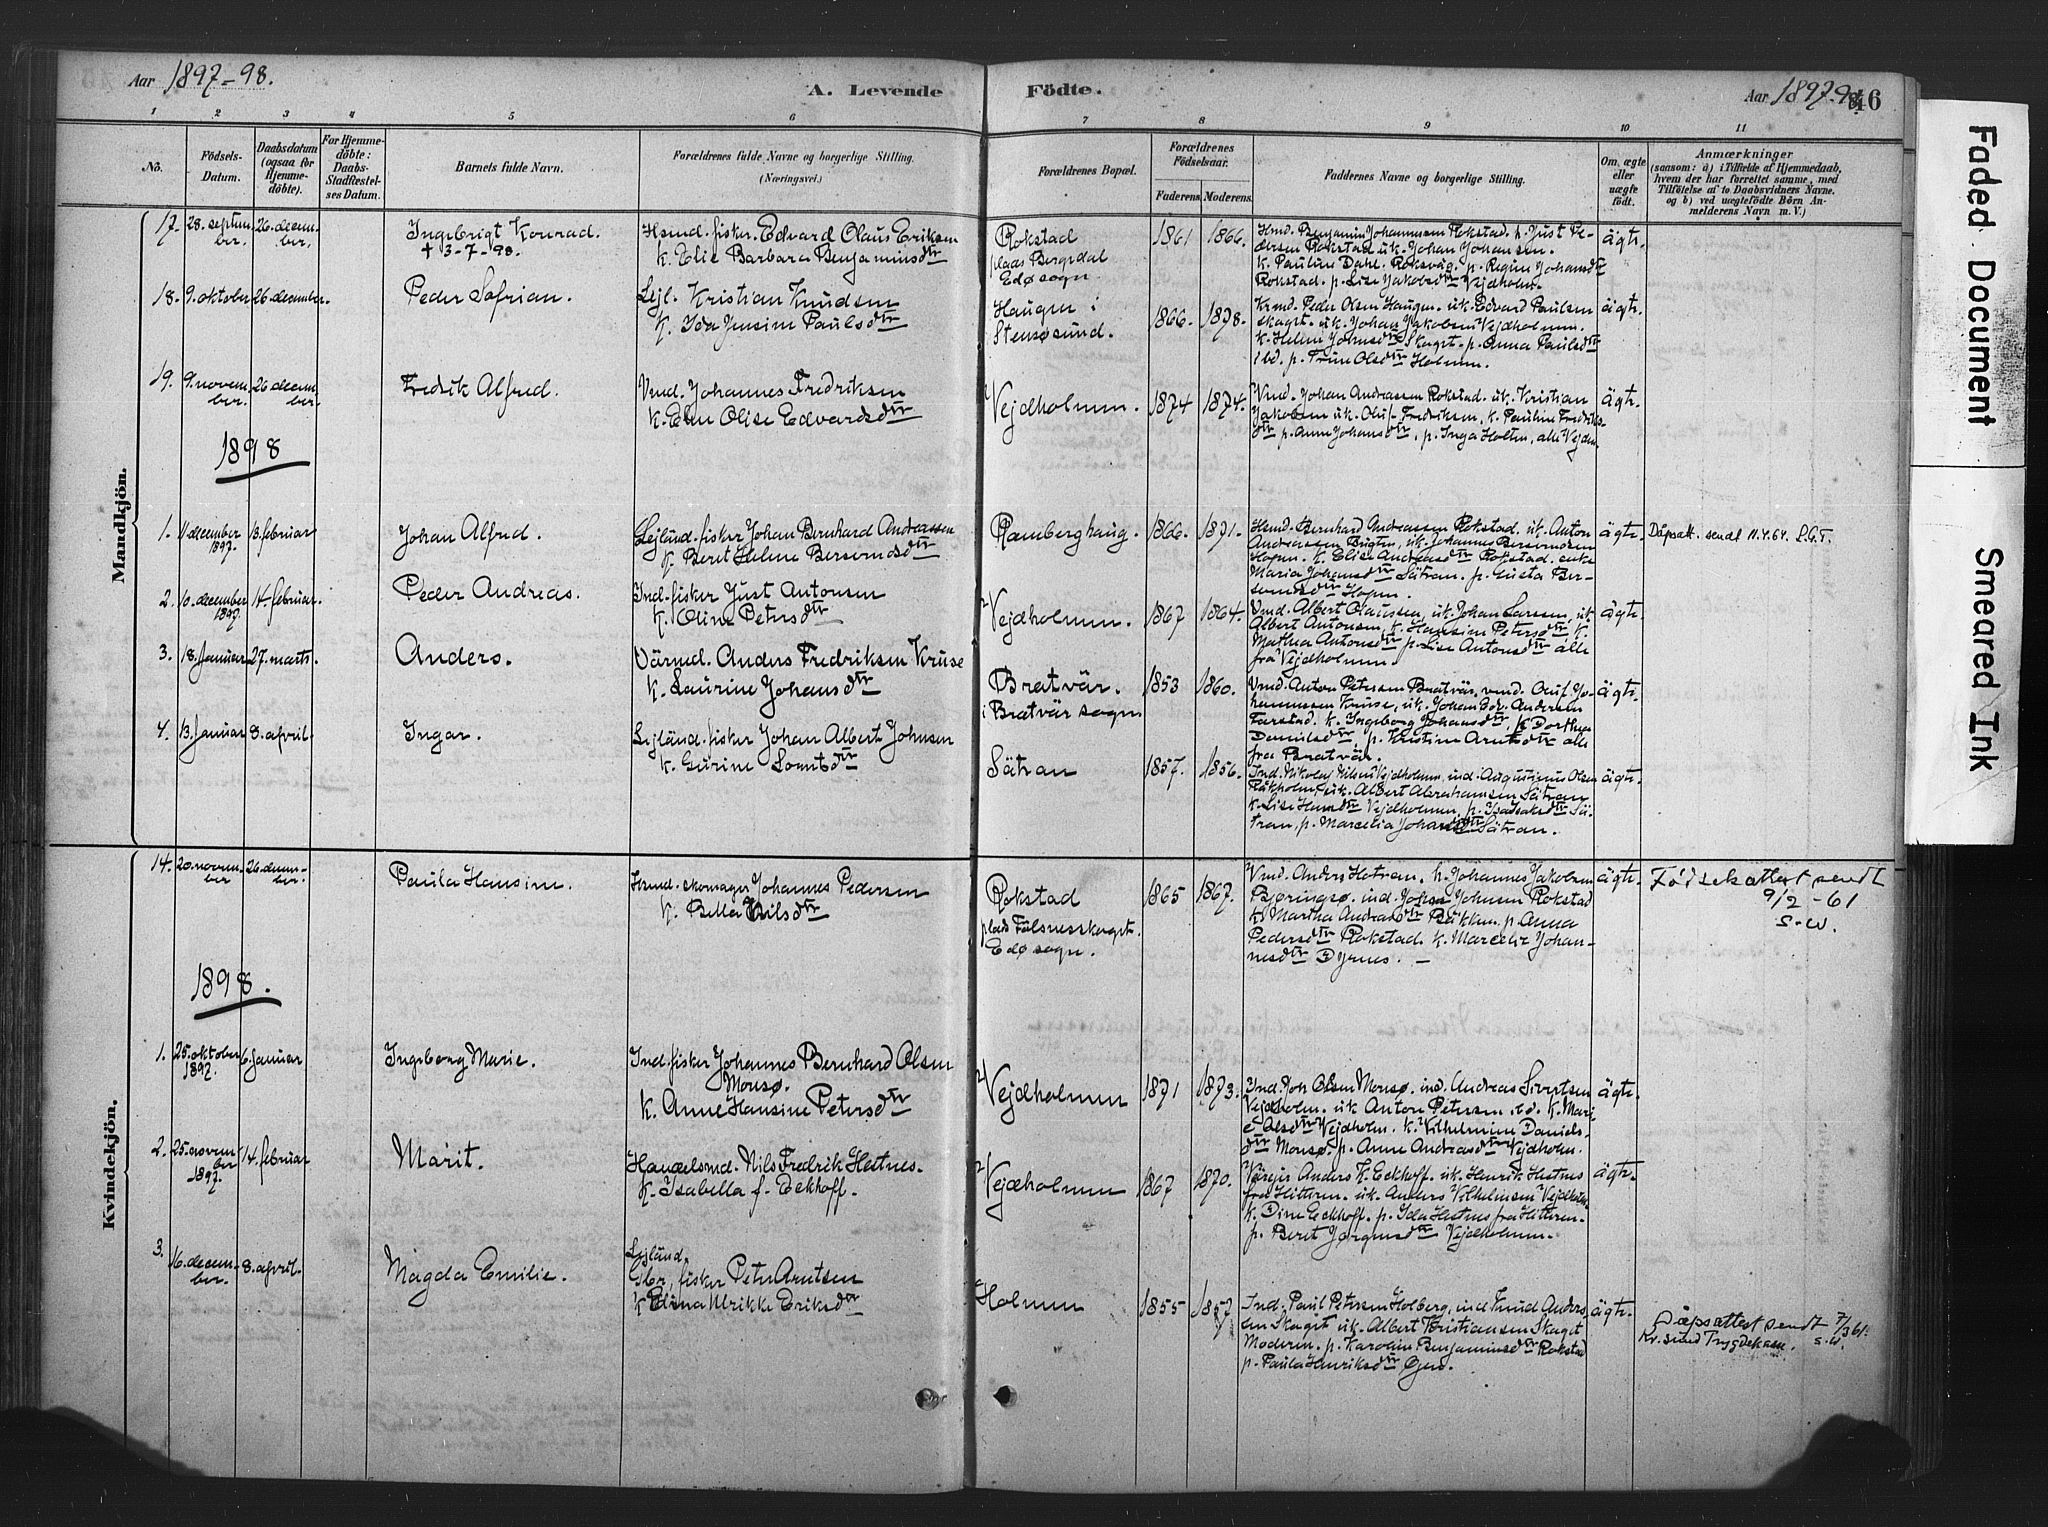 Aar 1897-98.
A. Levende Födte.
Aar 1897-98.
46
1 2 3 4 5 6 7 8 9 10 11
No.
Födsels-
Datum.
Daabsdatum
(ogsaa for
Hjemme-
döbte).
For Hjemme-
döbte:
Daabs-
Stadfæstel-
ses Datum.
Barnets fulde Navn.
Forældrenes fulde Navne og borgerlige Stilling.
(Næringsvei.)
Forældrenes Bopæl.
Forældrenes
Födselsaar.
Faderens. Moderens.
Faddernes Navne og borgerlige Stilling.
Om ægte
eller
uægte
födt.
Anmærkninger
(saasom: a) i Tilfælde af Hjemmedaab,
hvem der har forrettet samme, med
Tilföielse af to Daabsvidners Navne,
og b) ved uægtefödte Börn An-
melderens Navn m. V.)
Mandkjön.
17. 28. septem-
ber.
26. decem-
ber.
Ingebrigt Konrad.
† 3-7-98.
Hsmd. fisker. Edvard Olaus Eriksen
k. Elie Barbara Benjaminsdtr
Rokstad
plads Bergsdal
Edø sogn.
1861 1866.
Hsmd. Benjamin Johannesen Rokstad. h. Just Pe-
dersen Rokstad uk. Johan Johansen.
k. Pauline Dahl. Roksvåg. p. Regine Johansdtr
Rokstad. p. Lise Jakobsdtr Vejdholm.
ägte.
18. 9. oktober 26. december.
Peder Sofrian.
Lejl. Kristian Knudsen
k. Ida Jensine Paulsdtr
Haugen i
Stensøsund.
1866. 1878.
Kmd. Peder Olsen Haugen. uk. Edvard Paulsen
Skaget. uk. Johan Jakobsen Vejdholmen.
k. Helene Johnsdtr Skaget. p. Anna Paulsdtr
ibd. p. Trine Olsdtr Holmen.
ägte.
19. 9. novem-
ber.
26 decem-
ber.
Fredrik Alfred.
Vmd. Johannes Fredriksen
k. Elen Olise Edvardsdtr
Vejdholmen.
1874 1874.
Vmd. Johan Andreassen Rokstad. uk. Kristian
Jakobsen uk. Oluf Fredriksen, k. Pauline Fredriks-
dtr p. Anne Johansdtr, p. Inga Holten, alle Vejdh.
ägte.
1898
1. 11. december
1897.
13. februar
Johan Alfred.
Lejländ. fisker Johan Bernhard Andreassen
k. Berit Helene Bersvendsdtr
Ramberghaug.
1866. 1871.
Hsmd. Bernhard Andreassen Rokstad. uk. Anton
Andreassen Bugten, uk. Johannes Bersvendsen
Hopen. k. Elise Andreasdtr Rokstad. enke
Maria Johansdtr Sätran. p. Gusta Ber-
svendsdtr Hopen.
ägte.
Dåpsatt. sendt 11.4.64. S.G.T.
2. 10. december
1897.
14. februar.
Peder Andreas.
Ind. fisker Just Antonsen
k. Oline Petersdtr
Vejdholmen.
1867 1864.
Vmd. Albert Olaussen, uk. Johan Larssen, uk.
Albert Antonsen, k. Hansine Petersdtr k.
Mathea Antonsdtr p. Lise Antonsdtr alle
fra Vejdholmen.
ägte.
3. 18. januar 27. marts.
Anders.
Värmd. Anders Fredriksen Kruse
k. Laurine Johansdtr
Bratvär.
i Bratvär sogn
1853 1860.
Vmd. Anton Petersen Bratvär, vmd. Oluf Jo-
hannessen Kruse, uk. Johan Edv. Andersen
Farstad. k. Ingeborg Johansdtr, k. Dorthea
Danielsdtr, p. Kristine Arntsdtr alle
fra Bratvär.
ägte.
4. 13. januar 8. april.
Ingar.
Lejländ. fisker Johan Albert Johnsen
k. Gurine Lorntsdtr
Sätran
1857. 1856.
Ind. Nikolay Nilsen Vejdholmen, ind. Augustinus Olsen
Råkholm, uk. Albert Abrahamsen Sätran
k. Lise Hansdtr Vejdholmen, p. Isaksdtr Sä-
tran, p. Marcelia Johansdtr Sätran.
ägte.
Kvindekjön.
14. 20. novem-
ber
26. decem-
ber.
Paula Hansine.
Hsmd. skomager Johannes Pedersen
k. Bella Nilsdtr
Rokstad
plads Fålsnesskaget.
Edø sogn.
1865 1867.
Vmd. Anders Hatvan. h. Johannes Jakobsen
Bjøringsø. ind. Johan Johnsen Rokstad
k. Martha Andreasdtr Bakken. p. Anna
Pedersdtr Rokstad. k. Marcelie Johan-
nesdtr Dyrnes. —
ägte.
Födselsattest sendt
9/2-61
S.W.
1898.
1. 25. oktober
1897.
6. januar
Ingeborg Marie.
Ind. fisker Johannes Bernhard Olsen
Monsø.
k. Anne Hansine Petersdtr
Vejdholmen
1871 1873.
Ind. Joh Olsen Monsø. ind. Andreas Sivertsen
Vejdholm. uk Anton Petersen ibd. k. Mari-
e Olsdtr Vejdholm. k. Vilhelmine Daniels-
dtr Monsø. p. Anne Andreasdtr Vejdholm.
ägte.
2. 25. novem
ber
1897.
14. februar
Marit.
Handelsmd. Nils Fredrik Hestnes.
k. Isabella f. Eckhoff.
Vejdholmen
1867 1870.
Värejer Anders K. Eckhoff. uk. Henrik Hestnes
fra Hitteren. uk. Anders Vilhelmsen Vejdholm
k. Dine Eckhoff. p. Ida Hestnes fra Hitteren.
p. Berit Jørgensdtr Vejdholmen.
ägte.
3. 16. decem-
ber.
8. april.
Magda Emilie.
Lejländ.
Gbr. fisker Peter Arntsen
k Elena Ulrikke Eriksdtr
Holmen
1855 1857.
Ind. Paul Petersen Holberg, ind Knud Anders-
sen Skaget uk. Albert Kristiansen Skaget
Moderen. p. Karoline Benjaminsdtr Rokstad
p. Paula Henriksdtr Ojen.
ägte.
Dåpsattest sendt 7/3 61.
Kr.sund Trygdekasse. S.W.
Faded Document
Smeared Ink